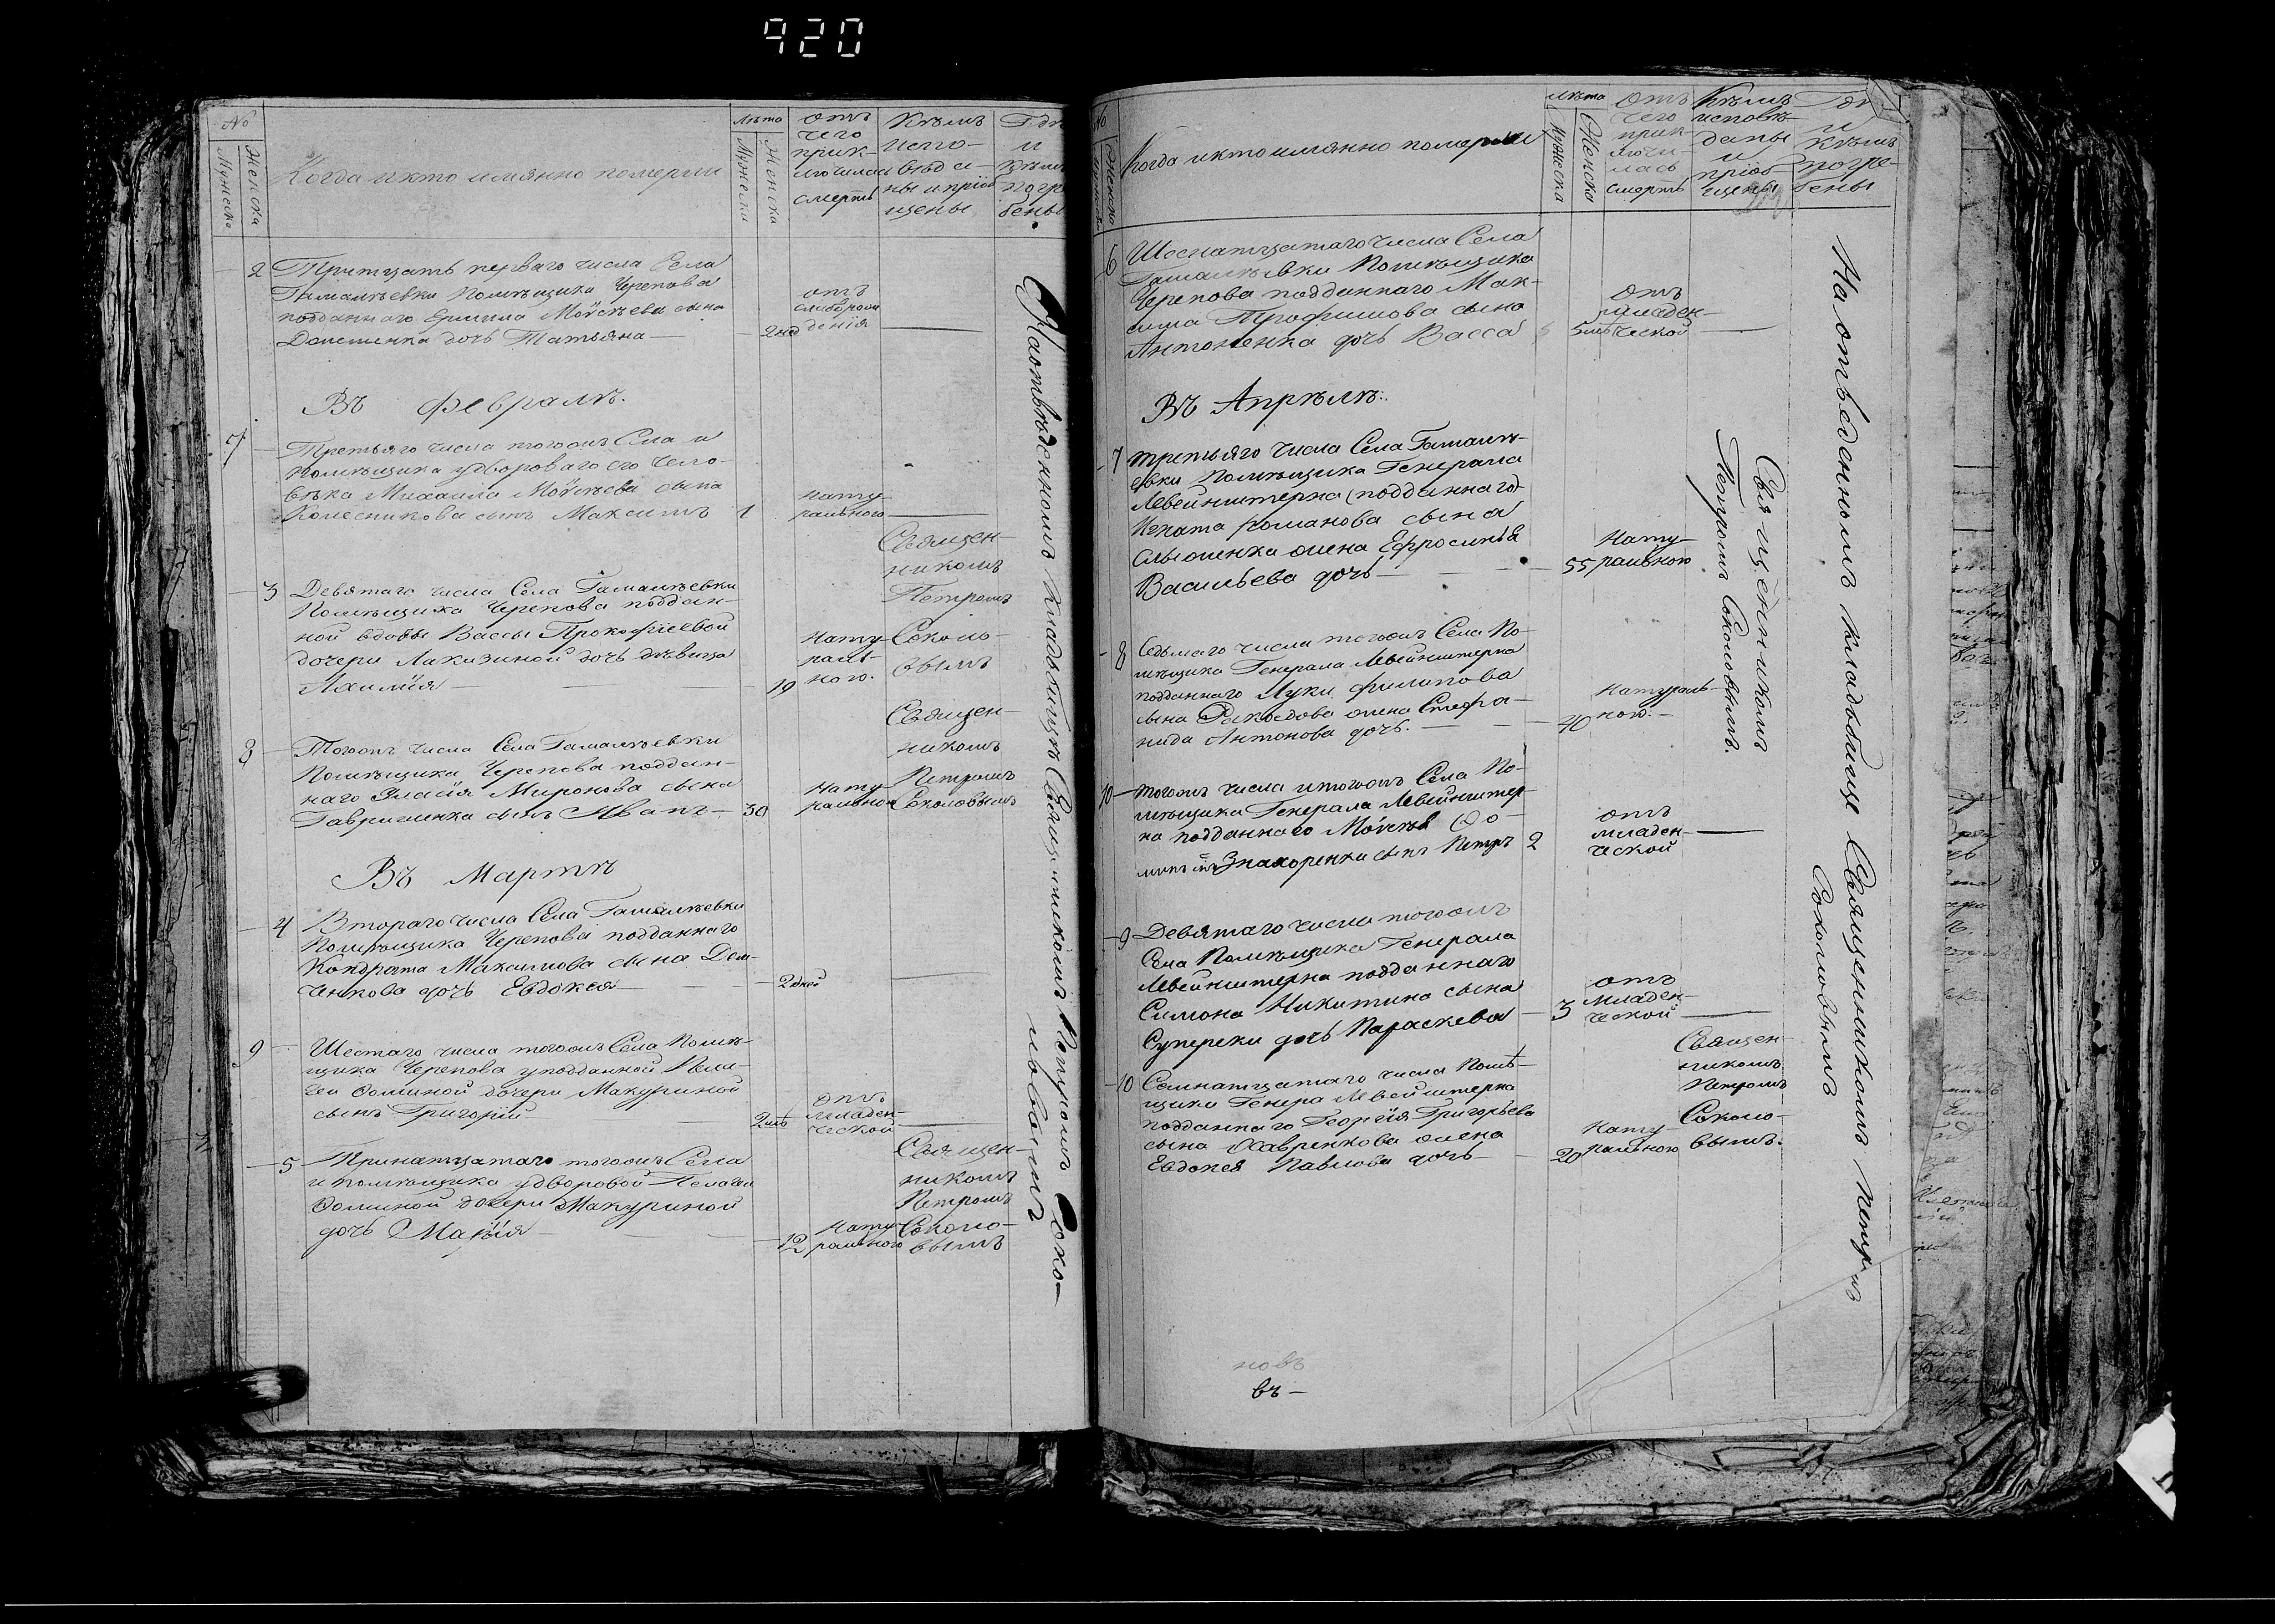 920
№
Мужеска
Женска
Когда и кто имянно померли
Лѣта
Мужеска
Женска
отъ
чего
прик-
лючилась
смерть
Кѣмъ
испо-
вѣда-
ны и пріоб
щены
Гдѣ
и
кѣмъ
погре
бены
2 Тритцать перваго числа Села
Гамалѣевки Помѣщика Черепова
подданнаго Ермила Моѵсѣева сына
дочь Татьяна
2 нед
отъ
слаборож
денія
Въ Февралѣ.
7 Третьяго числа тогожъ Села и
помѣщика у двороваго его чело-
вѣка Михаила Моѵсѣева сына
Колесникова сынъ Максимъ 1
нату-
ральною
3 Девятаго числа Села Гамалѣевки
Помѣщика Черепова поддан-
ной вдовы Вассы Прокофіевой
дочери Лакизиной дочь дѣвица
Акилія 19
нату-
раль-
ною.
Священ-
никомъ
Петромъ
Соколо-
вымъ
8 Тогожъ числа Села Гамалѣевки
Помѣщика Черепова поддан-
наго Власія Миронова сына
Гавриленка сынъ Иванъ 30
нату-
ральною
Священ-
никомъ
Петромъ
Соколовымъ
Въ Мартѣ
4 Втораго числа Села Гамалѣевки
Помѣщика Черепова подданнаго
Кондрата Максимова сына Дем-
ченкова дочь Евдокея
2 дней
9 Шестаго числа тогожъ Села Помѣ-
щика Черепова у подданной Пела-
геи Фоминой дочери Макуриной
сынъ Григорій
2 мѣ
отъ
младен-
ческой
5 Тринатцатаго тогожъ Села
и помѣщика у дворовой Пелагеи
Фоминой дочери Макуриной
дочь Марія
12
нату-
ральною
Священ-
никомъ
Петромъ
Соколо-
вымъ
На отвѣденномъ кладбищѣ Священникомъ Петромъ Соко-
ловымъ
№
Мужеска
Женска
Когда и кто имянно померли
Лѣта
Мужеска
Женска
отъ
чего
прик-
лючи-
лась
смерть
Кѣмъ
исповѣ-
даны
и
пріоб-
щены
Гдѣ
и
кѣмъ
погре-
бены
6 Шеснатцатаго числа Села
Гамалѣевки Помѣщика
Черепова подданнаго Мак-
сима Трофимова сына
Антоненка дочь Васса
5 мѣ
отъ
младен-
ческой
Въ Апрѣлѣ.
7 третьяго числа Села Гамалѣ-
евки Помѣщика Генерала
Левенштерна подданнаго
Игната Романова сына
жена Ефросинья
Васильева дочь
55
нату-
ральною
8 Седьмаго числа тогожъ Села По-
мѣщика Генерала Левенштерна
подданнаго Луки Филипова
сына жена Стефа-
нида Антонова дочь.
40
натураль-
ною.
10 тогожъ числа и тогожъ Села По-
мѣщика Генерала Левенштер-
на подданнаго Моѵсѣя Фо-
Знахоренка сынъ Петръ 2
отъ
младен-
ческой
9 Девятаго числа тогожъ
Села Помѣщика Генерала
Левенштерна подданнаго
Симона Никитина сына
Супереки дочь Параскева
3
отъ
младен-
ческой
10 Семнатцатаго числа Помѣ-
щика Генера Левенштерна
подданнаго Георгія Григорьева
сына Хавренкова жена
Евдокея Павлова дочь
20
нату-
ральною
Священ-
никомъ
Петромъ
Соколо-
вымъ.
Священникомъ
Петромъ Соколовымъ.
На отведенномъ кладбище Священникомъ Петромъ
Соколовымъ
въ